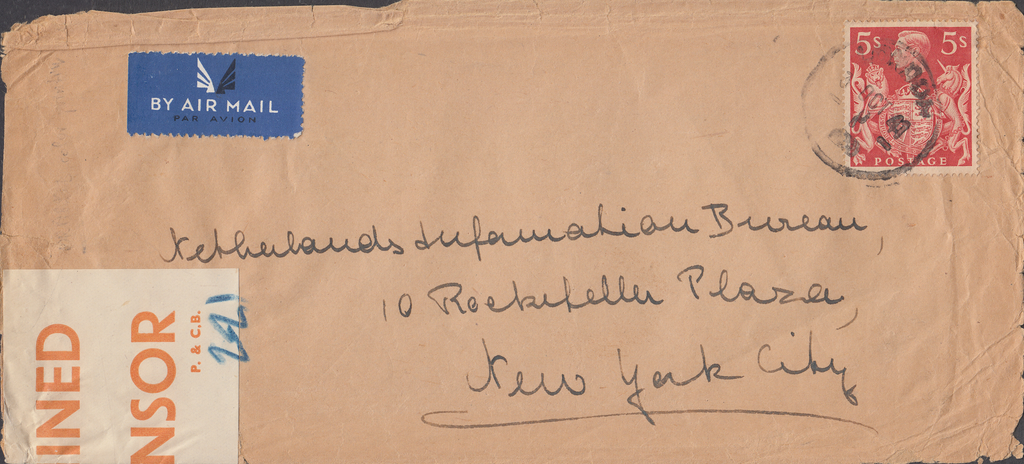 BY AIR MAIL
PAR AVION
5S 5S
POSTAGE
Netherlands Information Bureau,
10 Rockefeller Plaza,
New York City
INED
NSOR
P. & C.B.